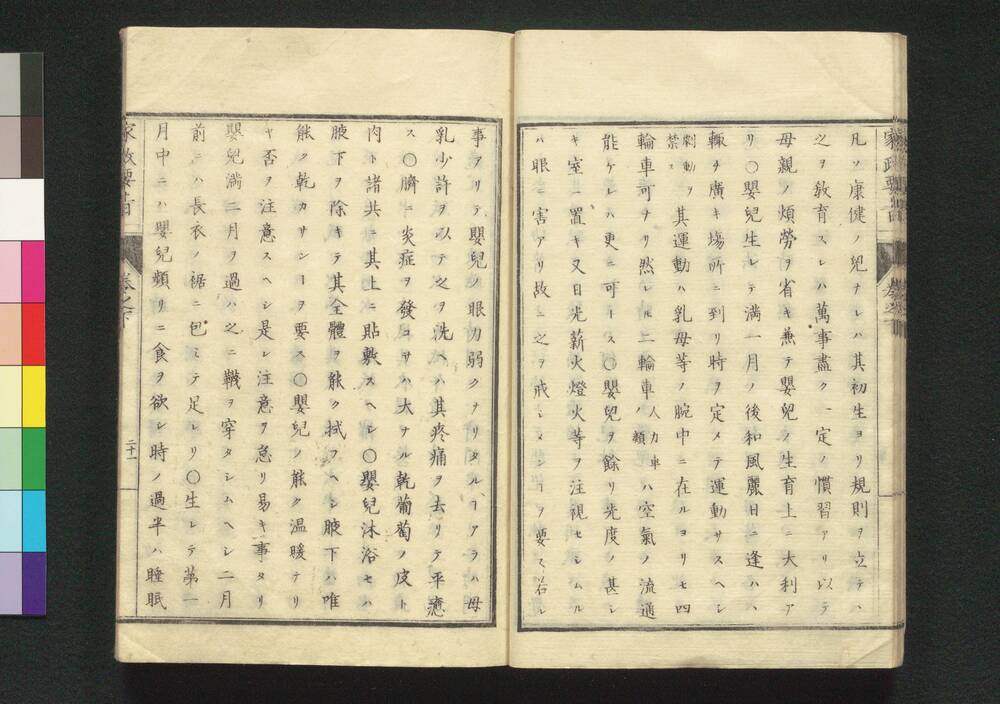 凡ソ康健ノ兒ナレハ其初生ヨリ規則ヲ立テハ
之ヲ敎育スレハ萬事盡ク一定ノ慣習アリ以テ
母親ノ煩勞ヲ省キ兼テ嬰兒ノ生育上ニ大利ア
リ〇嬰兒生レテ満一月ノ後和風麗日ニ逢ハヽ
輙チ廣キ場所ニ到リ時ヲ定メテ運動サスヘシ
劇動ヲ禁ス其運動ハ乳母等ノ腕中ニ在ルヨリモ四
輪車可ナリ然レヒ二輪車人力車ノ類ハ空氣ノ流通
能ケレハ更ニ可トス〇嬰兒ヲ餘リ光度ノ甚シ
キ室ニ置キ又日光薪火燈火等ヲ注視セシムル
ハ眼ニ害アリ故ニ之ヲ戒シメンヿヲ要ス若シ
家政要旨
卷之下
事アリテ嬰兒ノ眼力弱クナリタルヿアラハ母
乳少許ヲ以テ之ヲ洗ヘハ其疼痛ヲ去リテ平癒
ス〇臍ニ炎症ヲ發コサハ大ナル乾葡萄ノ皮ト
肉ト諸共ニ其上ニ貼敷スヘシ〇嬰兒沐浴セハ
腋下ヲ除キテ其全體ヲ能ク拭フヘシ腋下ハ唯
能ク乾カサンヿヲ要ス〇嬰兒ノ能ク温暖ナリ
ヤ否ヲ注意スヘシ是レ注意ヲ怠リ易キ事タリ
嬰兒満二月ヲ過ハ之ニ韈ヲ穿タシムヘシ二月
前ニハ長衣ノ裾ニ包ミテ足レリ〇生レテ苐一
月中ニハ嬰兒頻リニ食ヲ欲シ時ノ過半ハ睡眠
家政要旨
卷之下
二十一